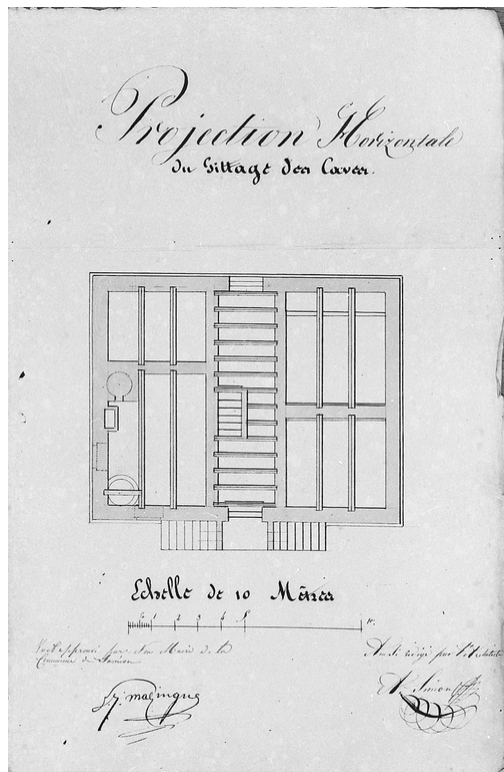 Projection Horizontale
du Gittage des Caves.
Echelle de 10 Mètres
1 2 3 4 5 10.
Vu et approuvé par Maire de la
Commune de
par l'Architecte
Simon